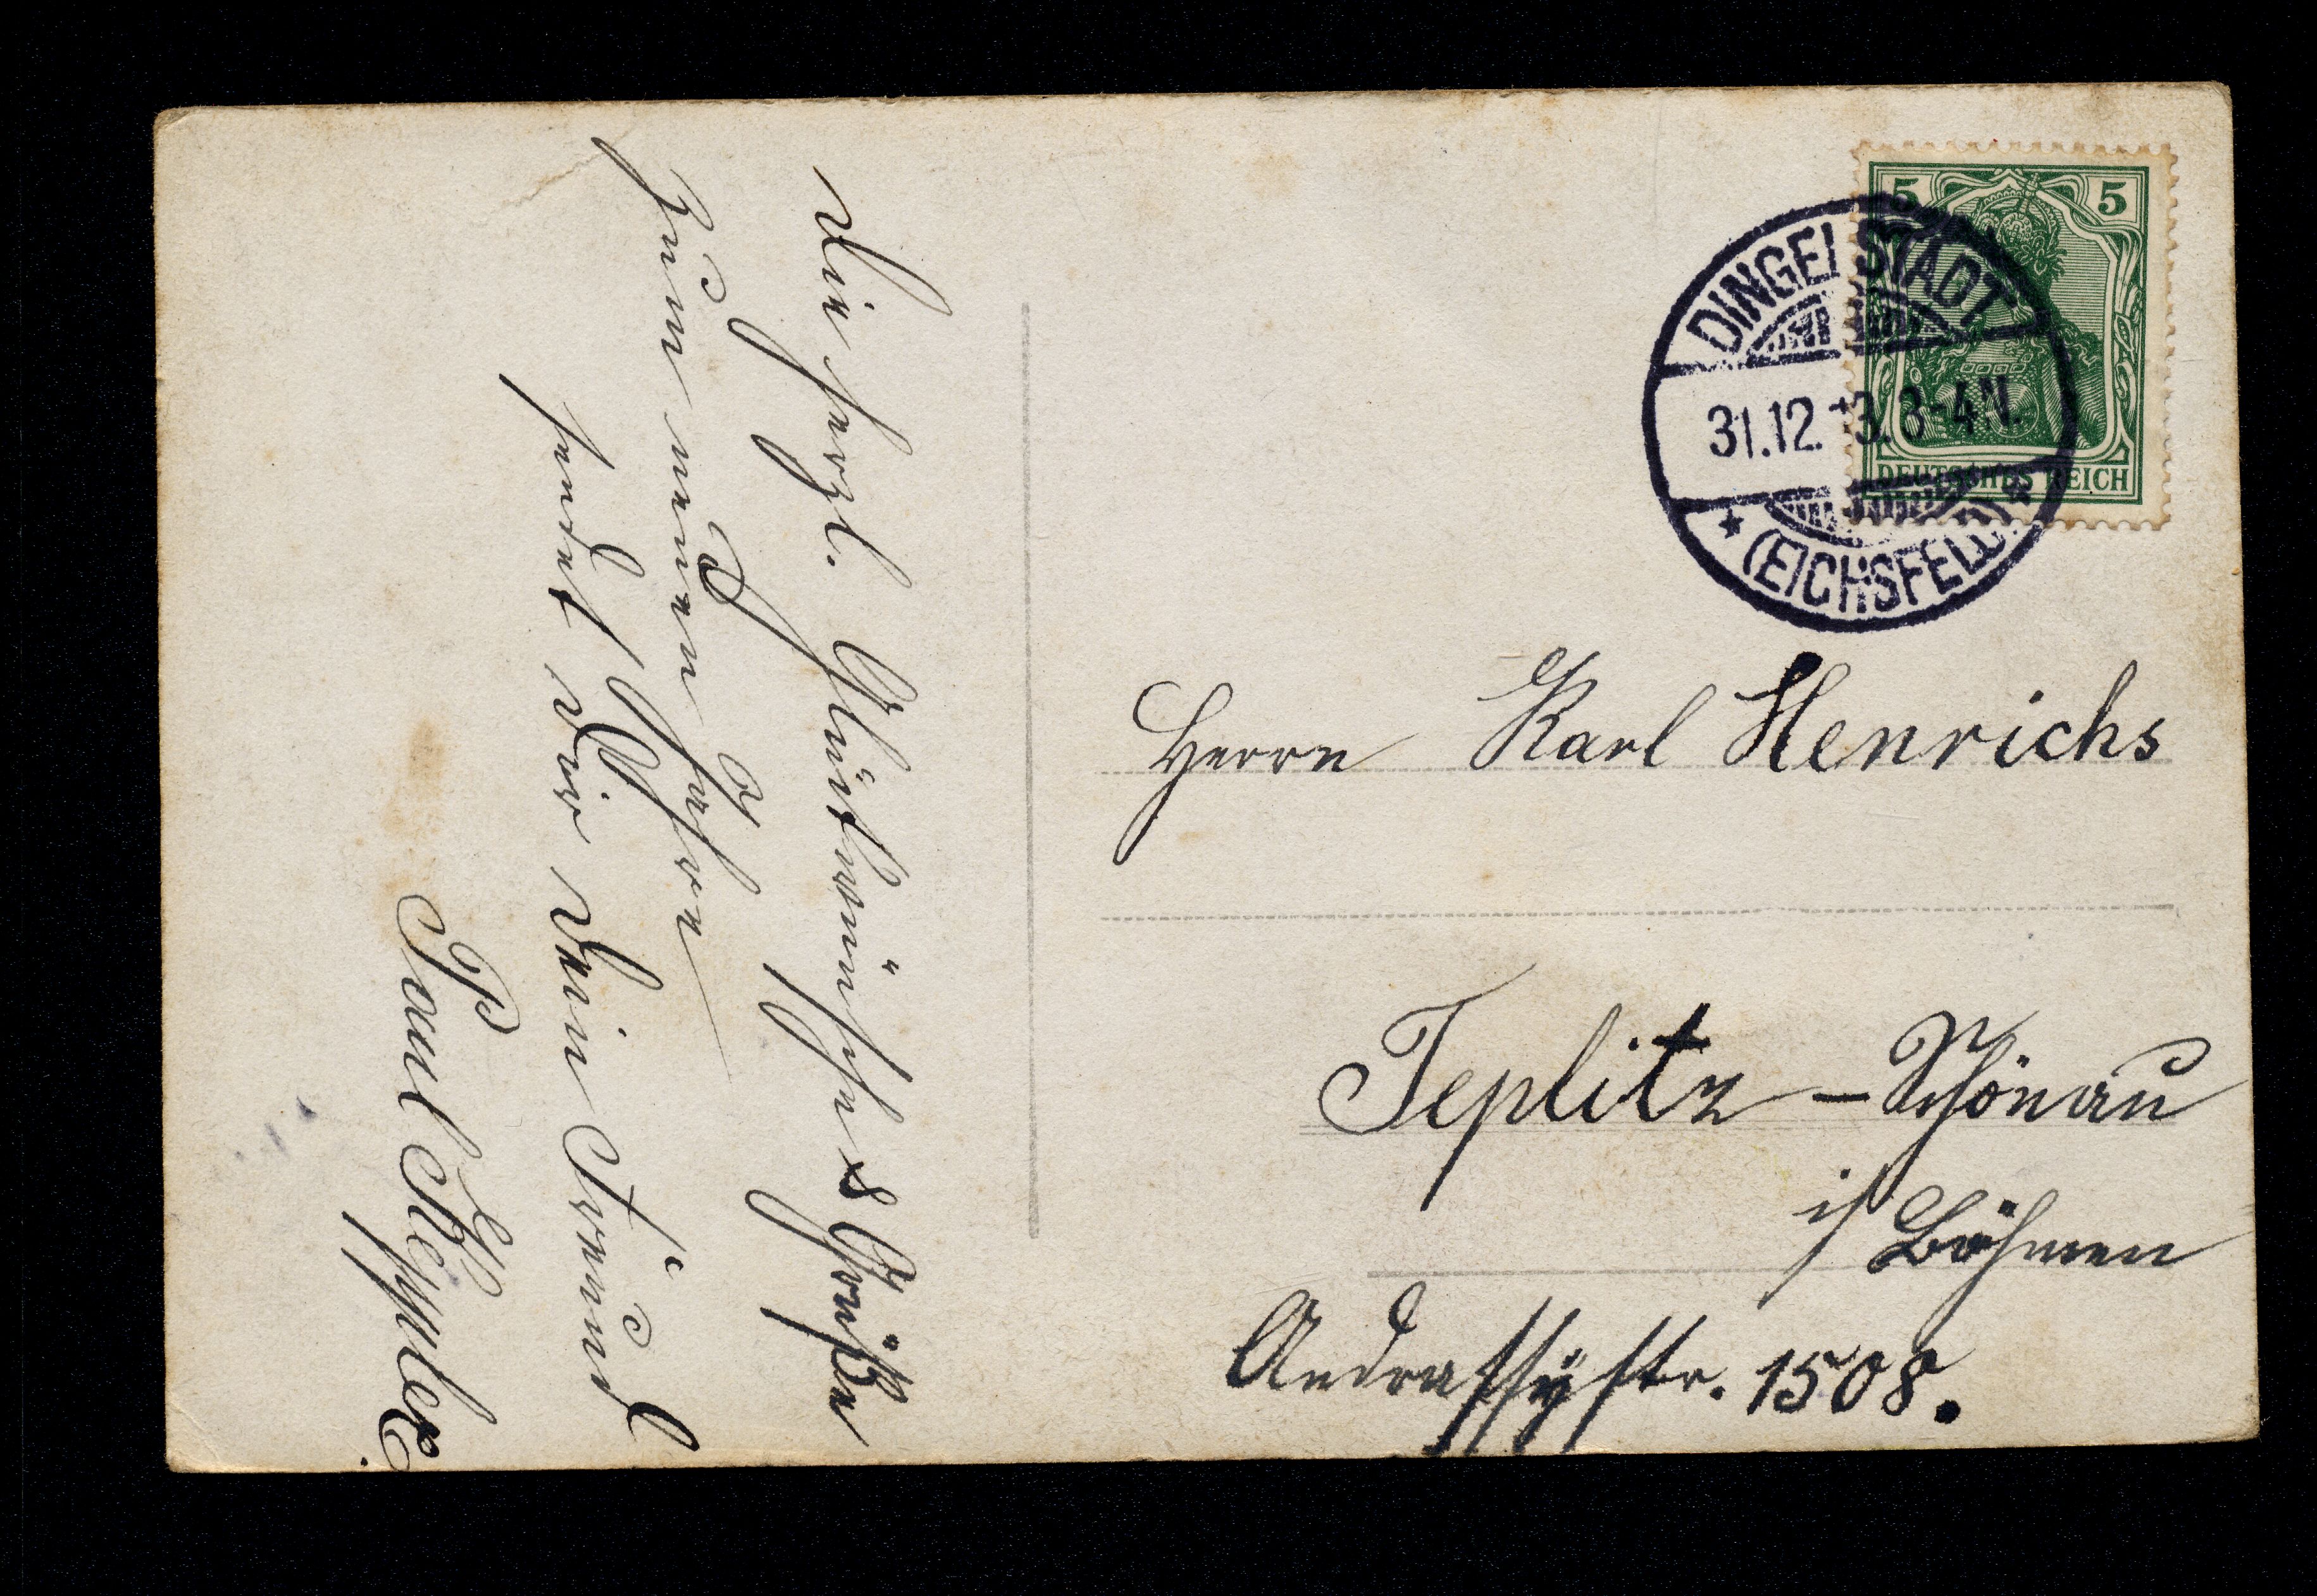 Die herzl. Glückwünsche & Grüße
zum neuen Jahre
sendet Dir Dein Freund
Paul
5 5
DEUTSCHES REICH
DINGELSTÄDT
31.12.13. 3-4 N.
* (EICHSFELD) *
Herrn Karl Henrichs
Teplitz – Schönau
i/ Böhmen
Andrassÿstr. 1508.